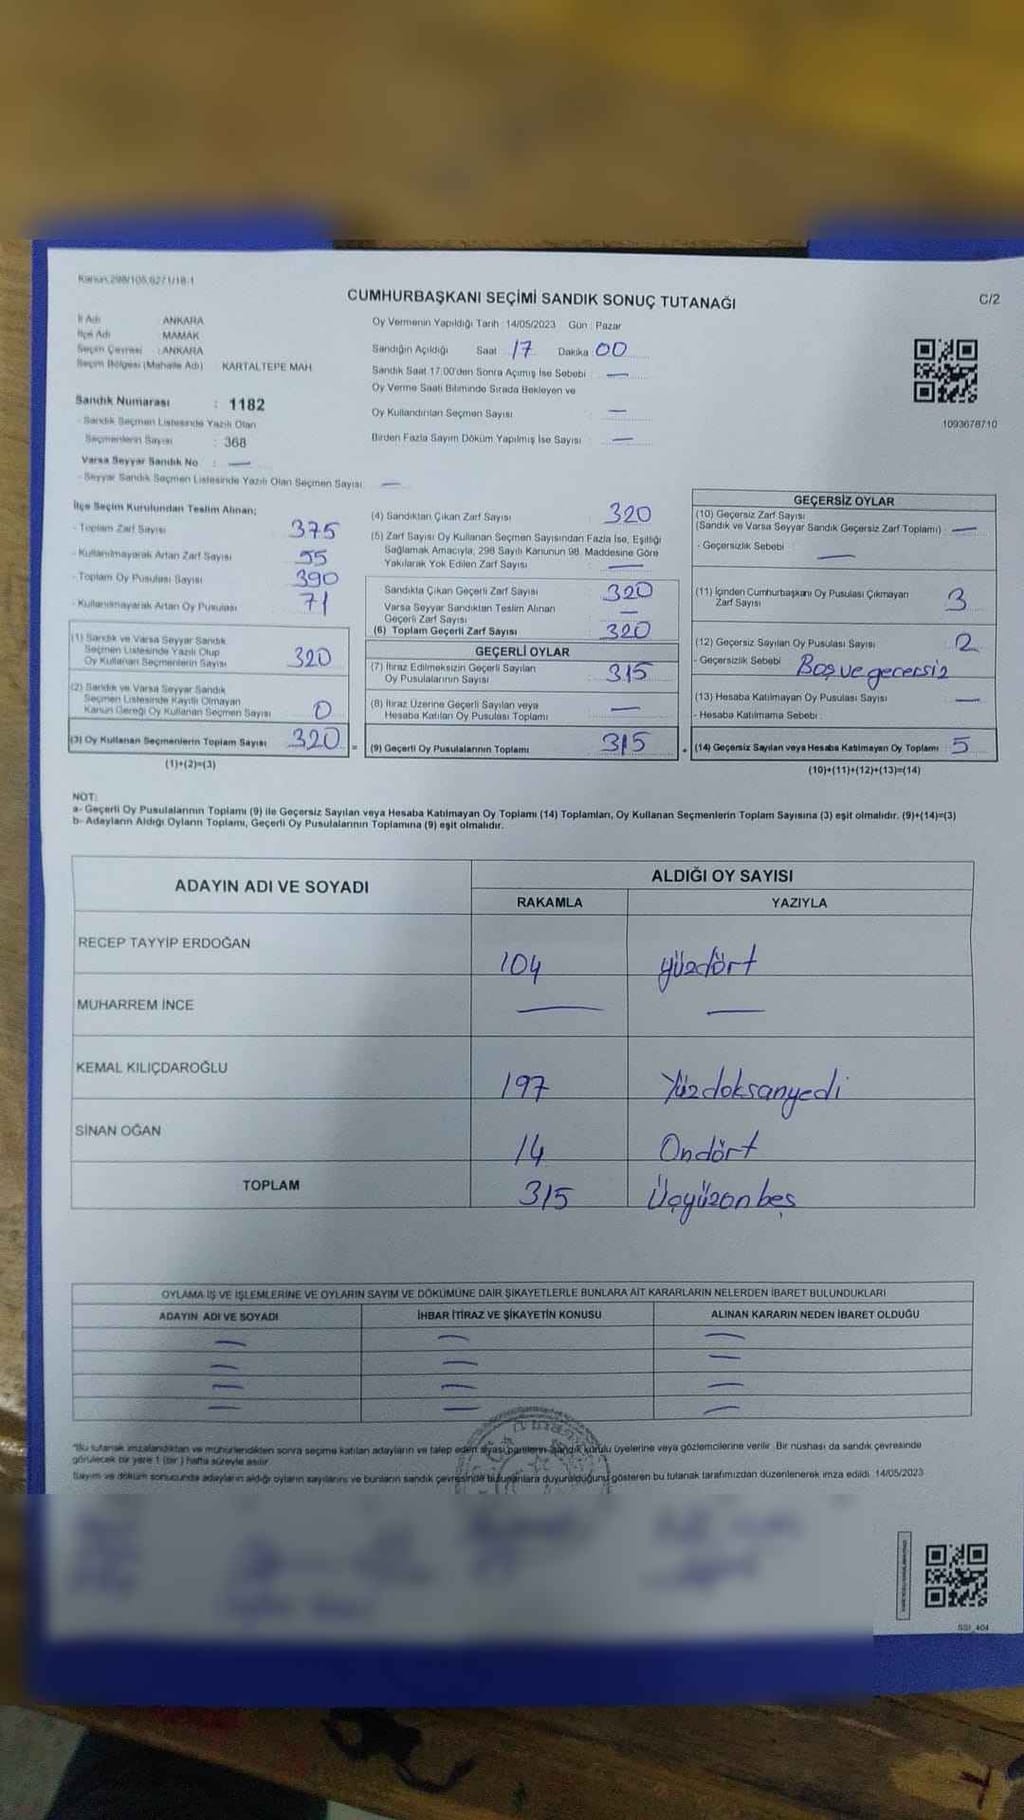 Kanun.298/105,6271/18-1
CUMHURBAŞKANI SEÇİMİ SANDIK SONUÇ TUTANAĞI
C/2
İl Adı ANKARA
İlçe Adı MAMAK
Seçim Çevresi : ANKARA
Seçim Bölgesi (Mahalle Adı) KARTALTEPE MAH.
Sandık Numarası : 1182
- Sandık Seçmen Listesinde Yazılı Olan
Seçmenlerin Sayısı : 368
Varsa Seyyar Sandık No : —
- Seyyar Sandık Seçmen Listesinde Yazılı Olan Seçmen Sayısı —
Oy Vermenin Yapıldığı Tarih : 14/05/2023 Gün : Pazar
Sandığın Açıldığı Saat 17 Dakika 00
Sandık Saat 17:00'den Sonra Açılmış İse Sebebi : —
Oy Verme Saati Bitiminde Sırada Bekleyen ve
Oy Kullandırılan Seçmen Sayısı —
Birden Fazla Sayım Döküm Yapılmış İse Sayısı —
1093678710
İlçe Seçim Kurulundan Teslim Alınan;
- Toplam Zarf Sayısı 375
- Kullanılmayarak Artan Zarf Sayısı 55
- Toplam Oy Pusulası Sayısı 390
- Kullanılmayarak Artan Oy Pusulası 71
(1) Sandık ve Varsa Seyyar Sandık
Seçmen Listesinde Yazılı Olup
Oy Kullanan Seçmenlerin Sayısı 320
(2) Sandık ve Varsa Seyyar Sandık
Seçmen Listesinde Kayıtlı Olmayan
Kanun Gereği Oy Kullanan Seçmen Sayısı 0
(3) Oy Kullanan Seçmenlerin Toplam Sayısı 320 =
(1)+(2)=(3)
(4) Sandıktan Çıkan Zarf Sayısı 320
(5) Zarf Sayısı Oy Kullanan Seçmen Sayısından Fazla İse, Eşitliği
Sağlamak Amacıyla, 298 Sayılı Kanunun 98. Maddesine Göre
Yakılarak Yok Edilen Zarf Sayısı —
Sandıkta Çıkan Geçerli Zarf Sayısı 320
Varsa Seyyar Sandıktan Teslim Alınan
Geçerli Zarf Sayısı —
(6) Toplam Geçerli Zarf Sayısı 320
GEÇERLİ OYLAR
(7) İtiraz Edilmeksizin Geçerli Sayılan
Oy Pusulalarının Sayısı 315
(8) İtiraz Üzerine Geçerli Sayılan veya
Hesaba Katılan Oy Pusulası Toplamı —
(9) Geçerli Oy Pusulalarının Toplamı 315
GEÇERSİZ OYLAR
(10) Geçersiz Zarf Sayısı
(Sandık ve Varsa Seyyar Sandık Geçersiz Zarf Toplamı) —
- Geçersizlik Sebebi : —
(11) İçinden Cumhurbaşkanı Oy Pusulası Çıkmayan
Zarf Sayısı 3
(12) Geçersiz Sayılan Oy Pusulası Sayısı 2
- Geçersizlik Sebebi Boş ve gecersiz
(13) Hesaba Katılmayan Oy Pusulası Sayısı —
- Hesaba Katılmama Sebebi :
(14) Geçersiz Sayılan veya Hesaba Katılmayan Oy Toplamı 5
(10)+(11)+(12)+(13)=(14)
NOT:
a- Geçerli Oy Pusulalarının Toplamı (9) ile Geçersiz Sayılan veya Hesaba Katılmayan Oy Toplamı (14) Toplamları, Oy Kullanan Seçmenlerin Toplam Sayısına (3) eşit olmalıdır. (9)+(14)=(3)
b- Adayların Aldığı Oyların Toplamı, Geçerli Oy Pusulalarının Toplamına (9) eşit olmalıdır.
ADAYIN ADI VE SOYADI
ALDIĞI OY SAYISI
RAKAMLA YAZIYLA
RECEP TAYYİP ERDOĞAN 104 yüzdört
MUHARREM İNCE — —
KEMAL KILIÇDAROĞLU 197 Yüzdoksanyedi
SİNAN OĞAN 14 Ondört
TOPLAM 315 Üçyüzonbeş
OYLAMA İŞ VE İŞLEMLERİNE VE OYLARIN SAYIM VE DÖKÜMÜNE DAİR ŞİKAYETLERLE BUNLARA AİT KARARLARIN NELERDEN İBARET BULUNDUKLARI
ADAYIN ADI VE SOYADI İHBAR İTİRAZ VE ŞİKAYETİN KONUSU ALINAN KARARIN NEDEN İBARET OLDUĞU
— — —
— — —
— — —
— — —
"Bu tutanak imzalandıktan ve mühürlendikten sonra seçime katılan adayların ve talep eden siyasi partilerin sandık kurulu üyelerine veya gözlemcilerine verilir. Bir nüshası da sandık çevresinde
görülecek bir yere 1 (bir) hafta süreyle asılır.
Sayım ve döküm sonucunda adayların aldığı oyların sayılarını ve bunların sandık çevresinde bulunanlara duyurulduğunu gösteren bu tutanak tarafımızdan düzenlenerek imza edildi. 14/05/2023
SSI_404